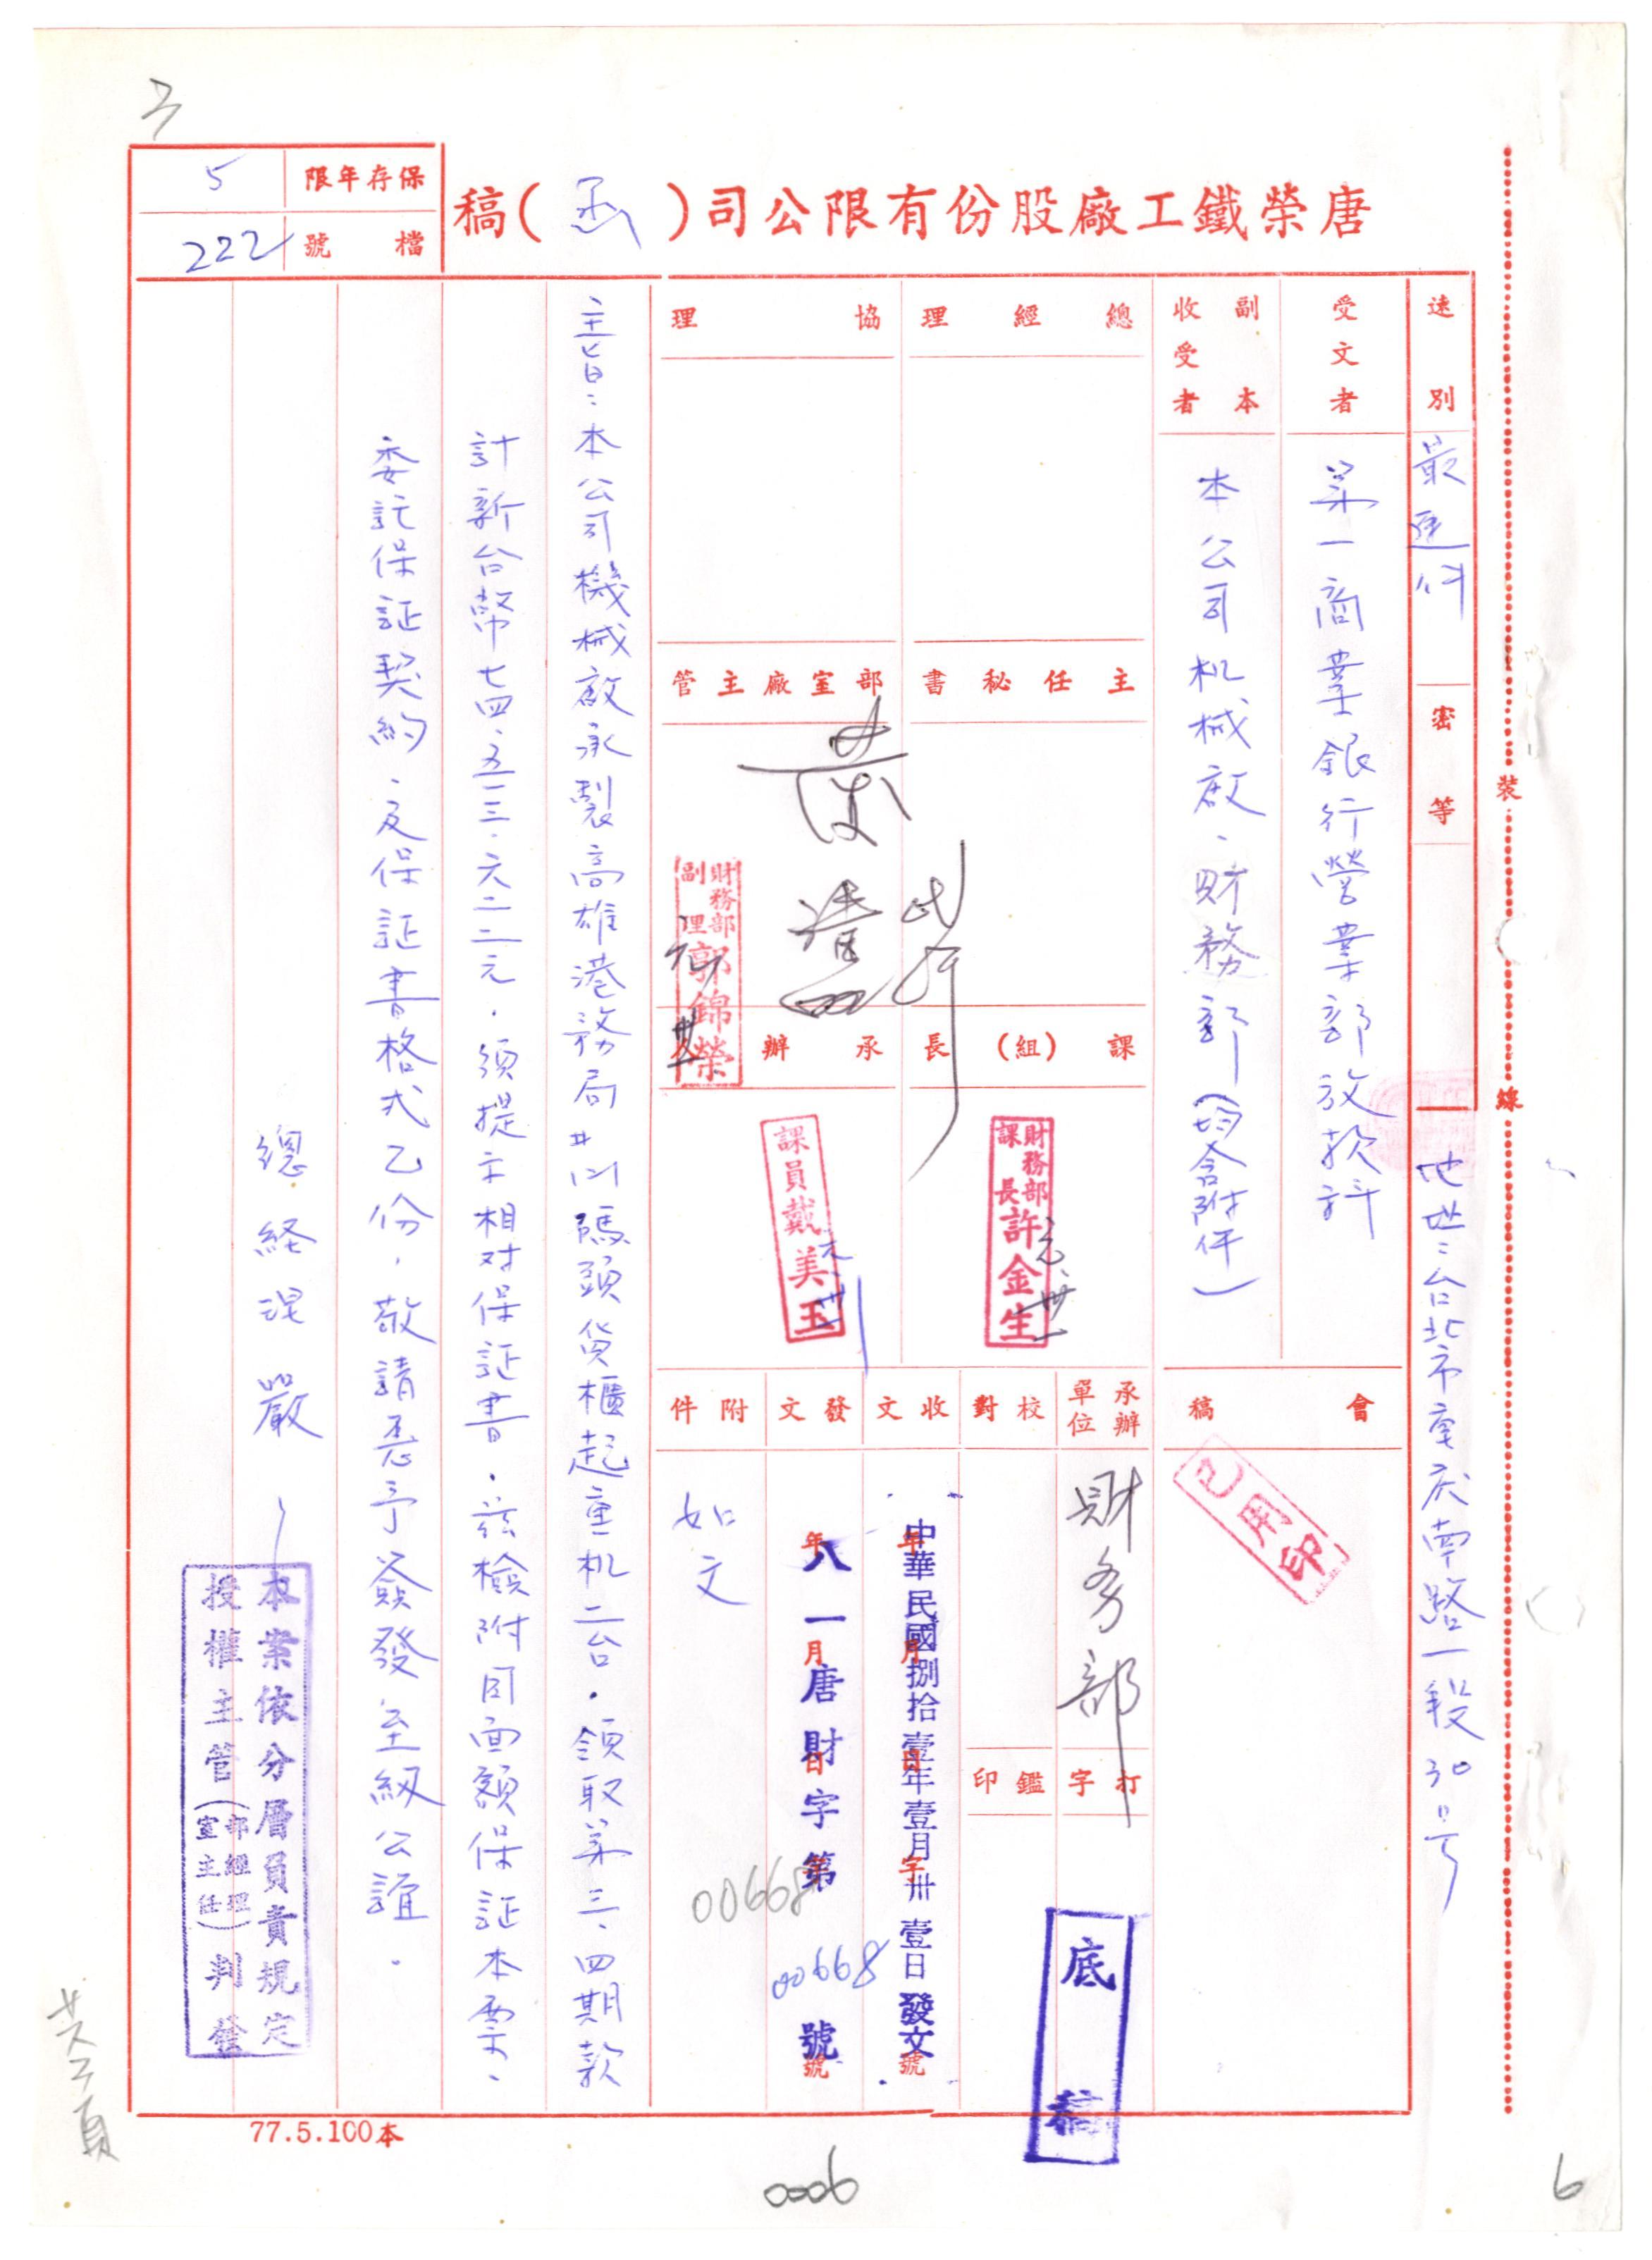 唐榮鐵工廠股份有限公司(函)稿
保存年限 5
檔號 222
速別 最速件
密等
地址:台北市重慶南路一段30号
受文者 第一商業銀行營業部放款課
副本收受者 本公司机械廠、財務部(均含附件)
會稿
已用印
總經理
協理
主任秘書
部室廠主管
財務部副理郭錦榮
課(組)長
財務部課長許金生
元、卅一
承辦人
課員戴美玉
承辦單位 財务部
校對
打字
鑑印
收文 年月日字號
中華民國捌拾壹年壹月卅壹日發文
發文 年月日字第號
八一唐財字第00668號
00668
附件 如文
底稿
主旨:本公司機械廠承製高雄港務局#121碼頭貨櫃起重机二台,領取第三、四期款
計新台幣七四、五一三、六二二元,須提主相对保証書,茲檢附同面額保証本票、
委託保証契約、及保証書格式乙份,敬請惠予簽發至級公誼。
總経理嚴
本案依分層負責規定
授權主管(部經理室主任)判發
裝
線
77.5.100本
共3頁
0006
6